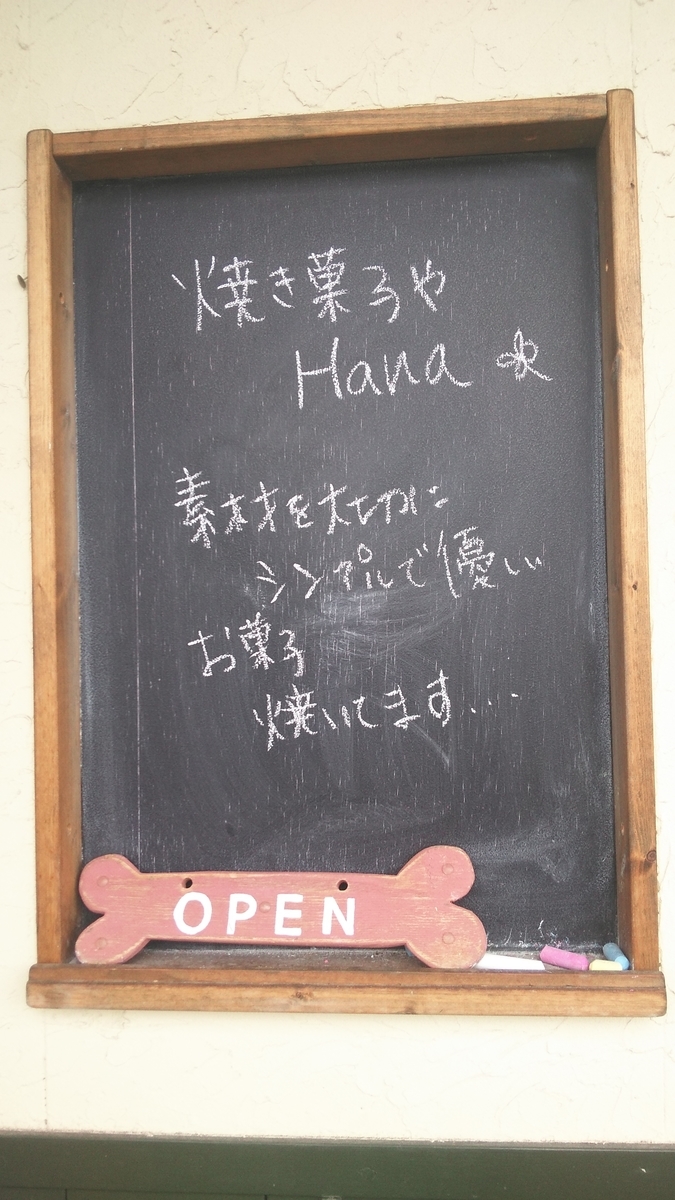 焼き菓子や
Hana
素材を大切に
シンプルで優しい
お菓子
焼いてます...
OPEN